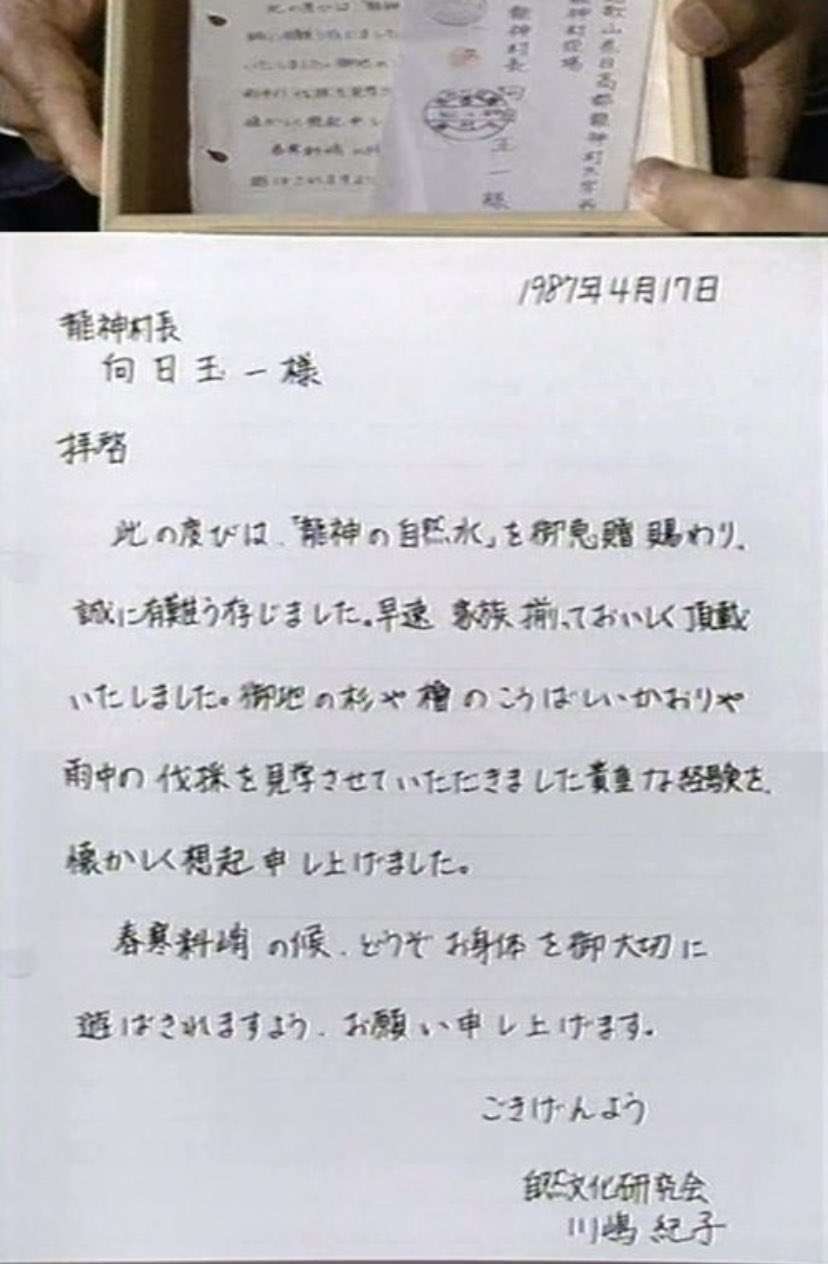 此の度びは、「龍神
いたしました。御地の
雨中の伐採を見学さ
懐かしく想起申し
春寒料峭
遊ばされますよう
龍神村長
正一様
龍神村役場
1987年4月17日
龍神村長
向日玉一様
拝啓
此の度びは、「龍神の自然水」を御恵贈賜わり、
誠に有難う存じました。早速 家族揃っておいしく頂戴
いたしました。御地の杉や檜のこうばしいかおりや
雨中の伐採を見学させていただきました貴重な経験を、
懐かしく想起申し上げました。
春寒料峭の候、どうぞお身体を御大切に
遊ばされますよう、お願い申し上げます。
ごきげんよう
自然文化研究会
川嶋紀子